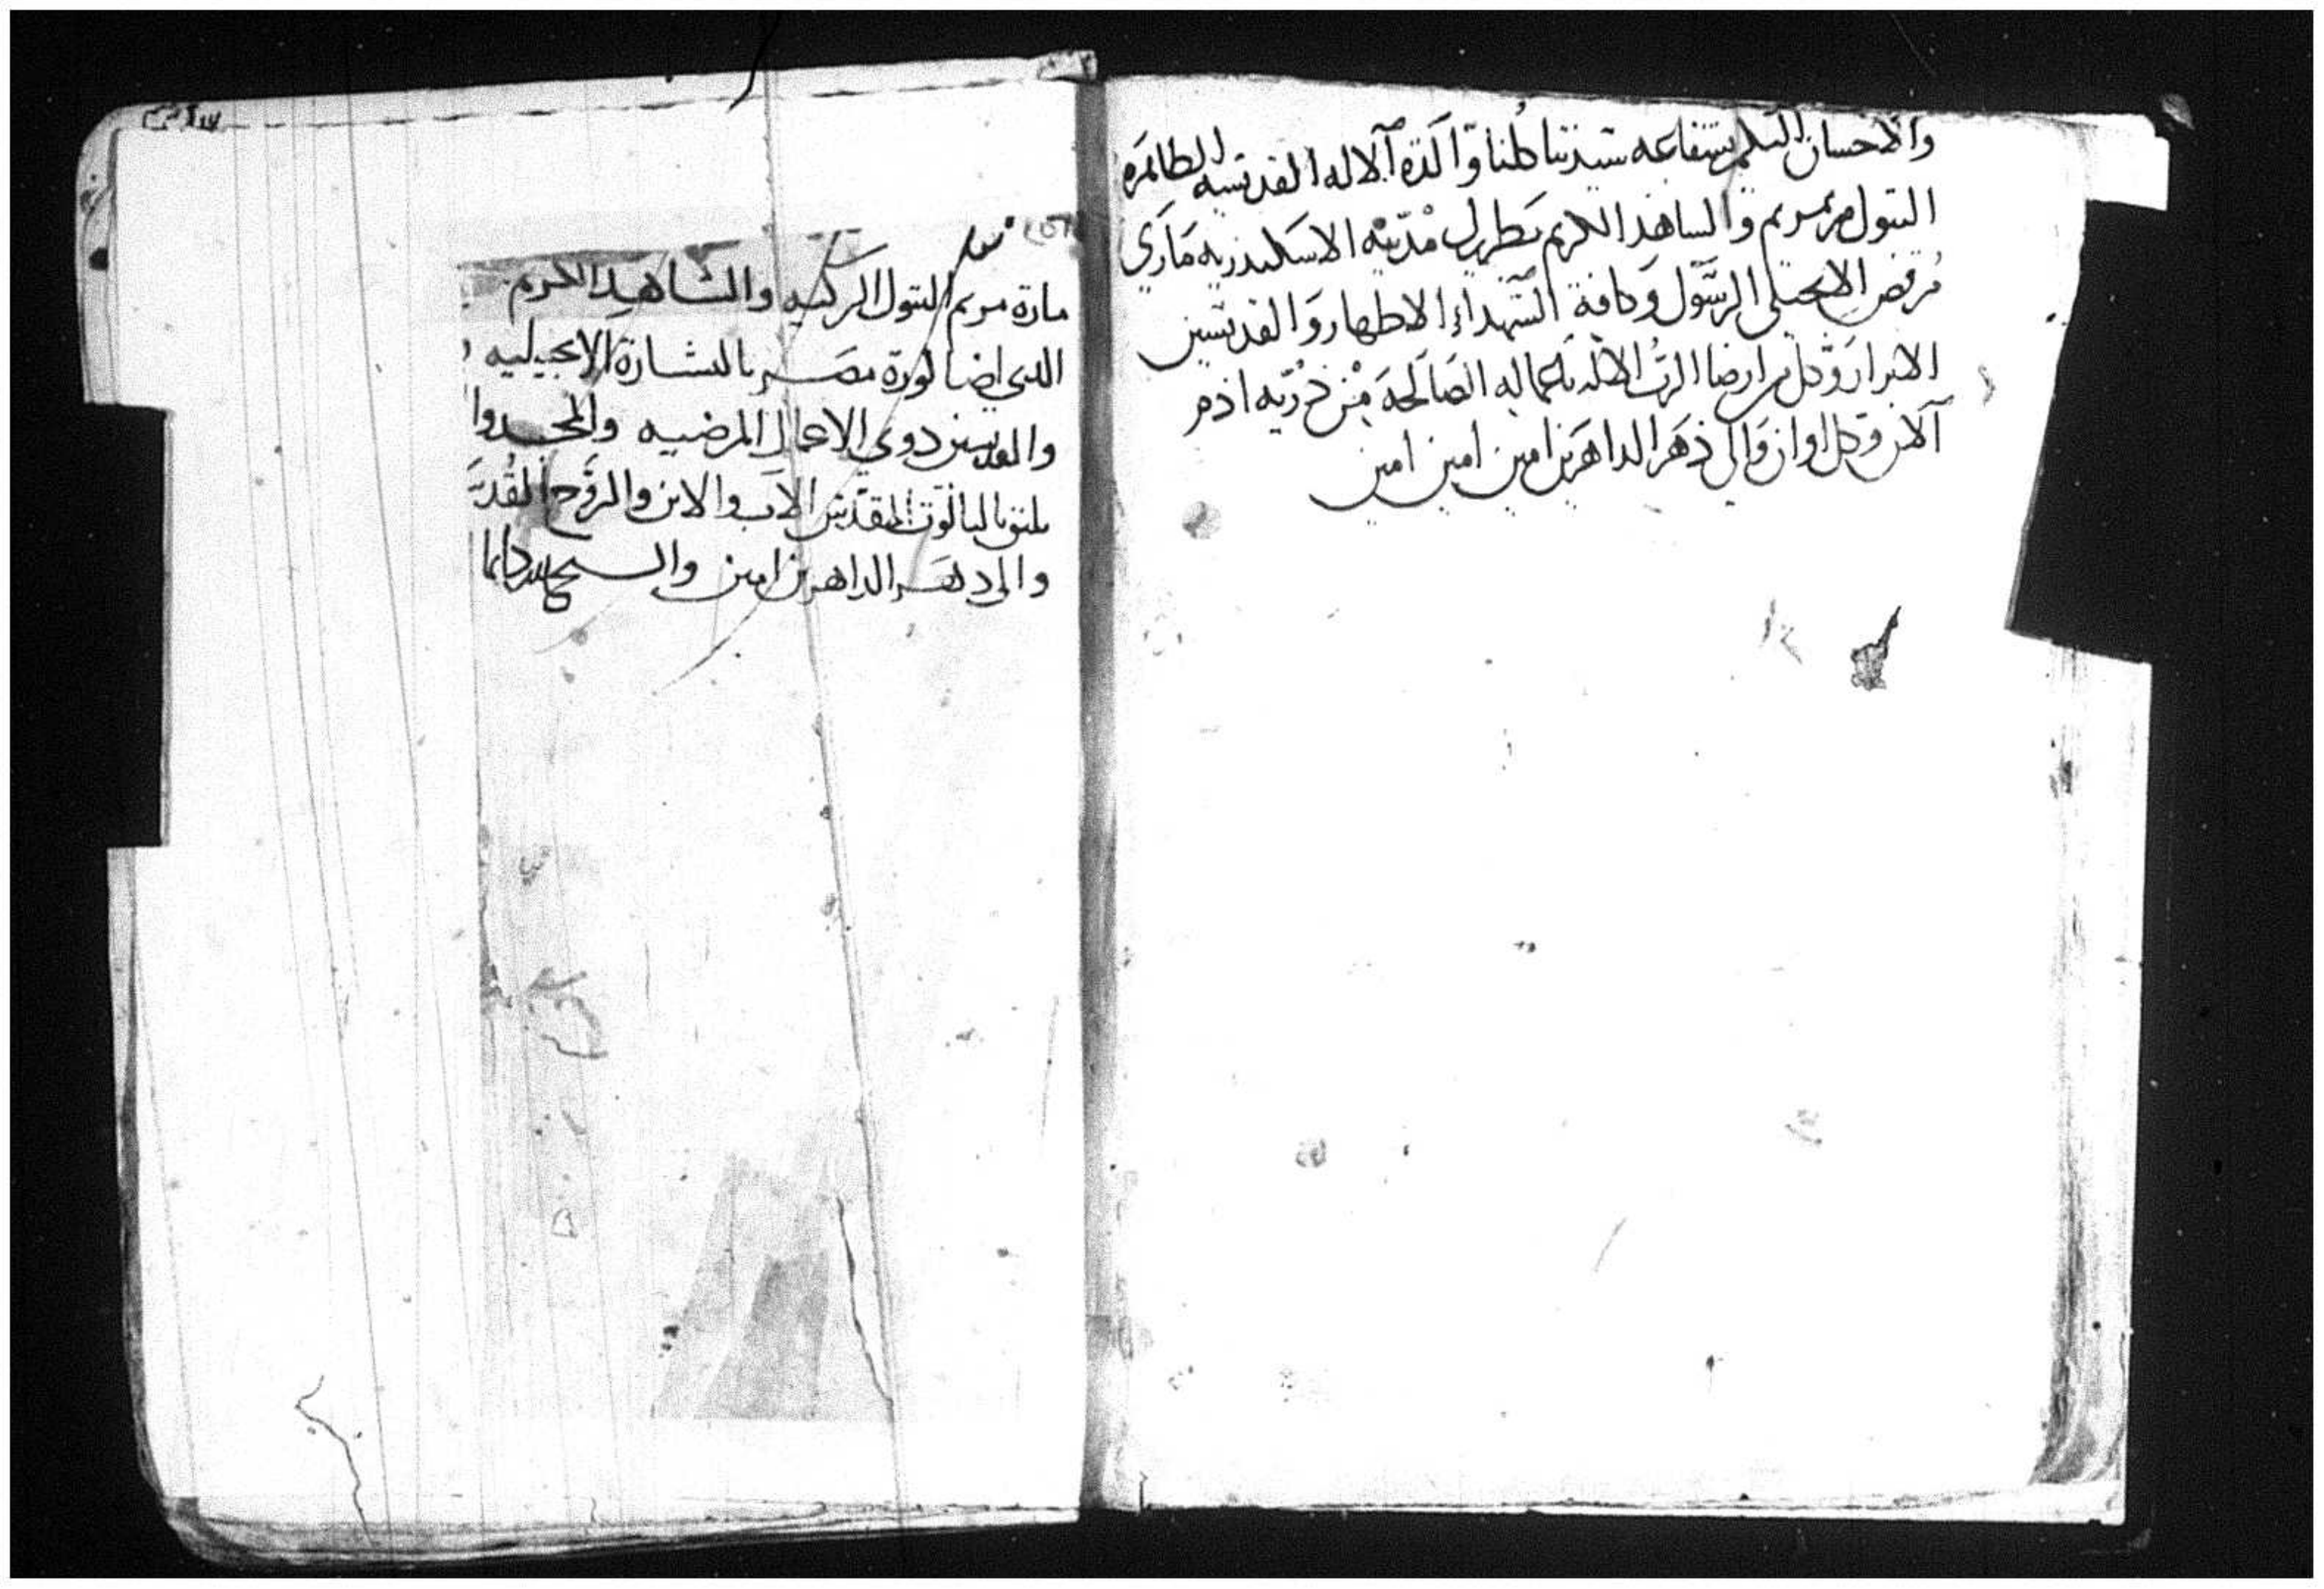 والاحسان اليكم بشفاعه ستيدتنا كلنا وآلدة آلاله القديسه الطاهره
البتول مرتمريم والساهد الكريم بطريرك مدينه الاسكندريه ماري
مرقص الانجيلي الرسول وكافة الشهداء الاطهار والقديسين
الابرار وكل من ارضا الرب الاله باعماله الصالحه من ذريه ادم
آلان وكل اوان والي ذهر الداهرين امين امين امين
مارة مريم البتول الزكيه والشاهد الكريم
الدي اضا لورة مصر بالبشارة الانجيليه
والقديسين دوي الاعمال المرضيه والمجد
يليق بالتالوت المقدس الاب والابن والروح القدس
والي دهر الداهرين امين والسبح لله دايما